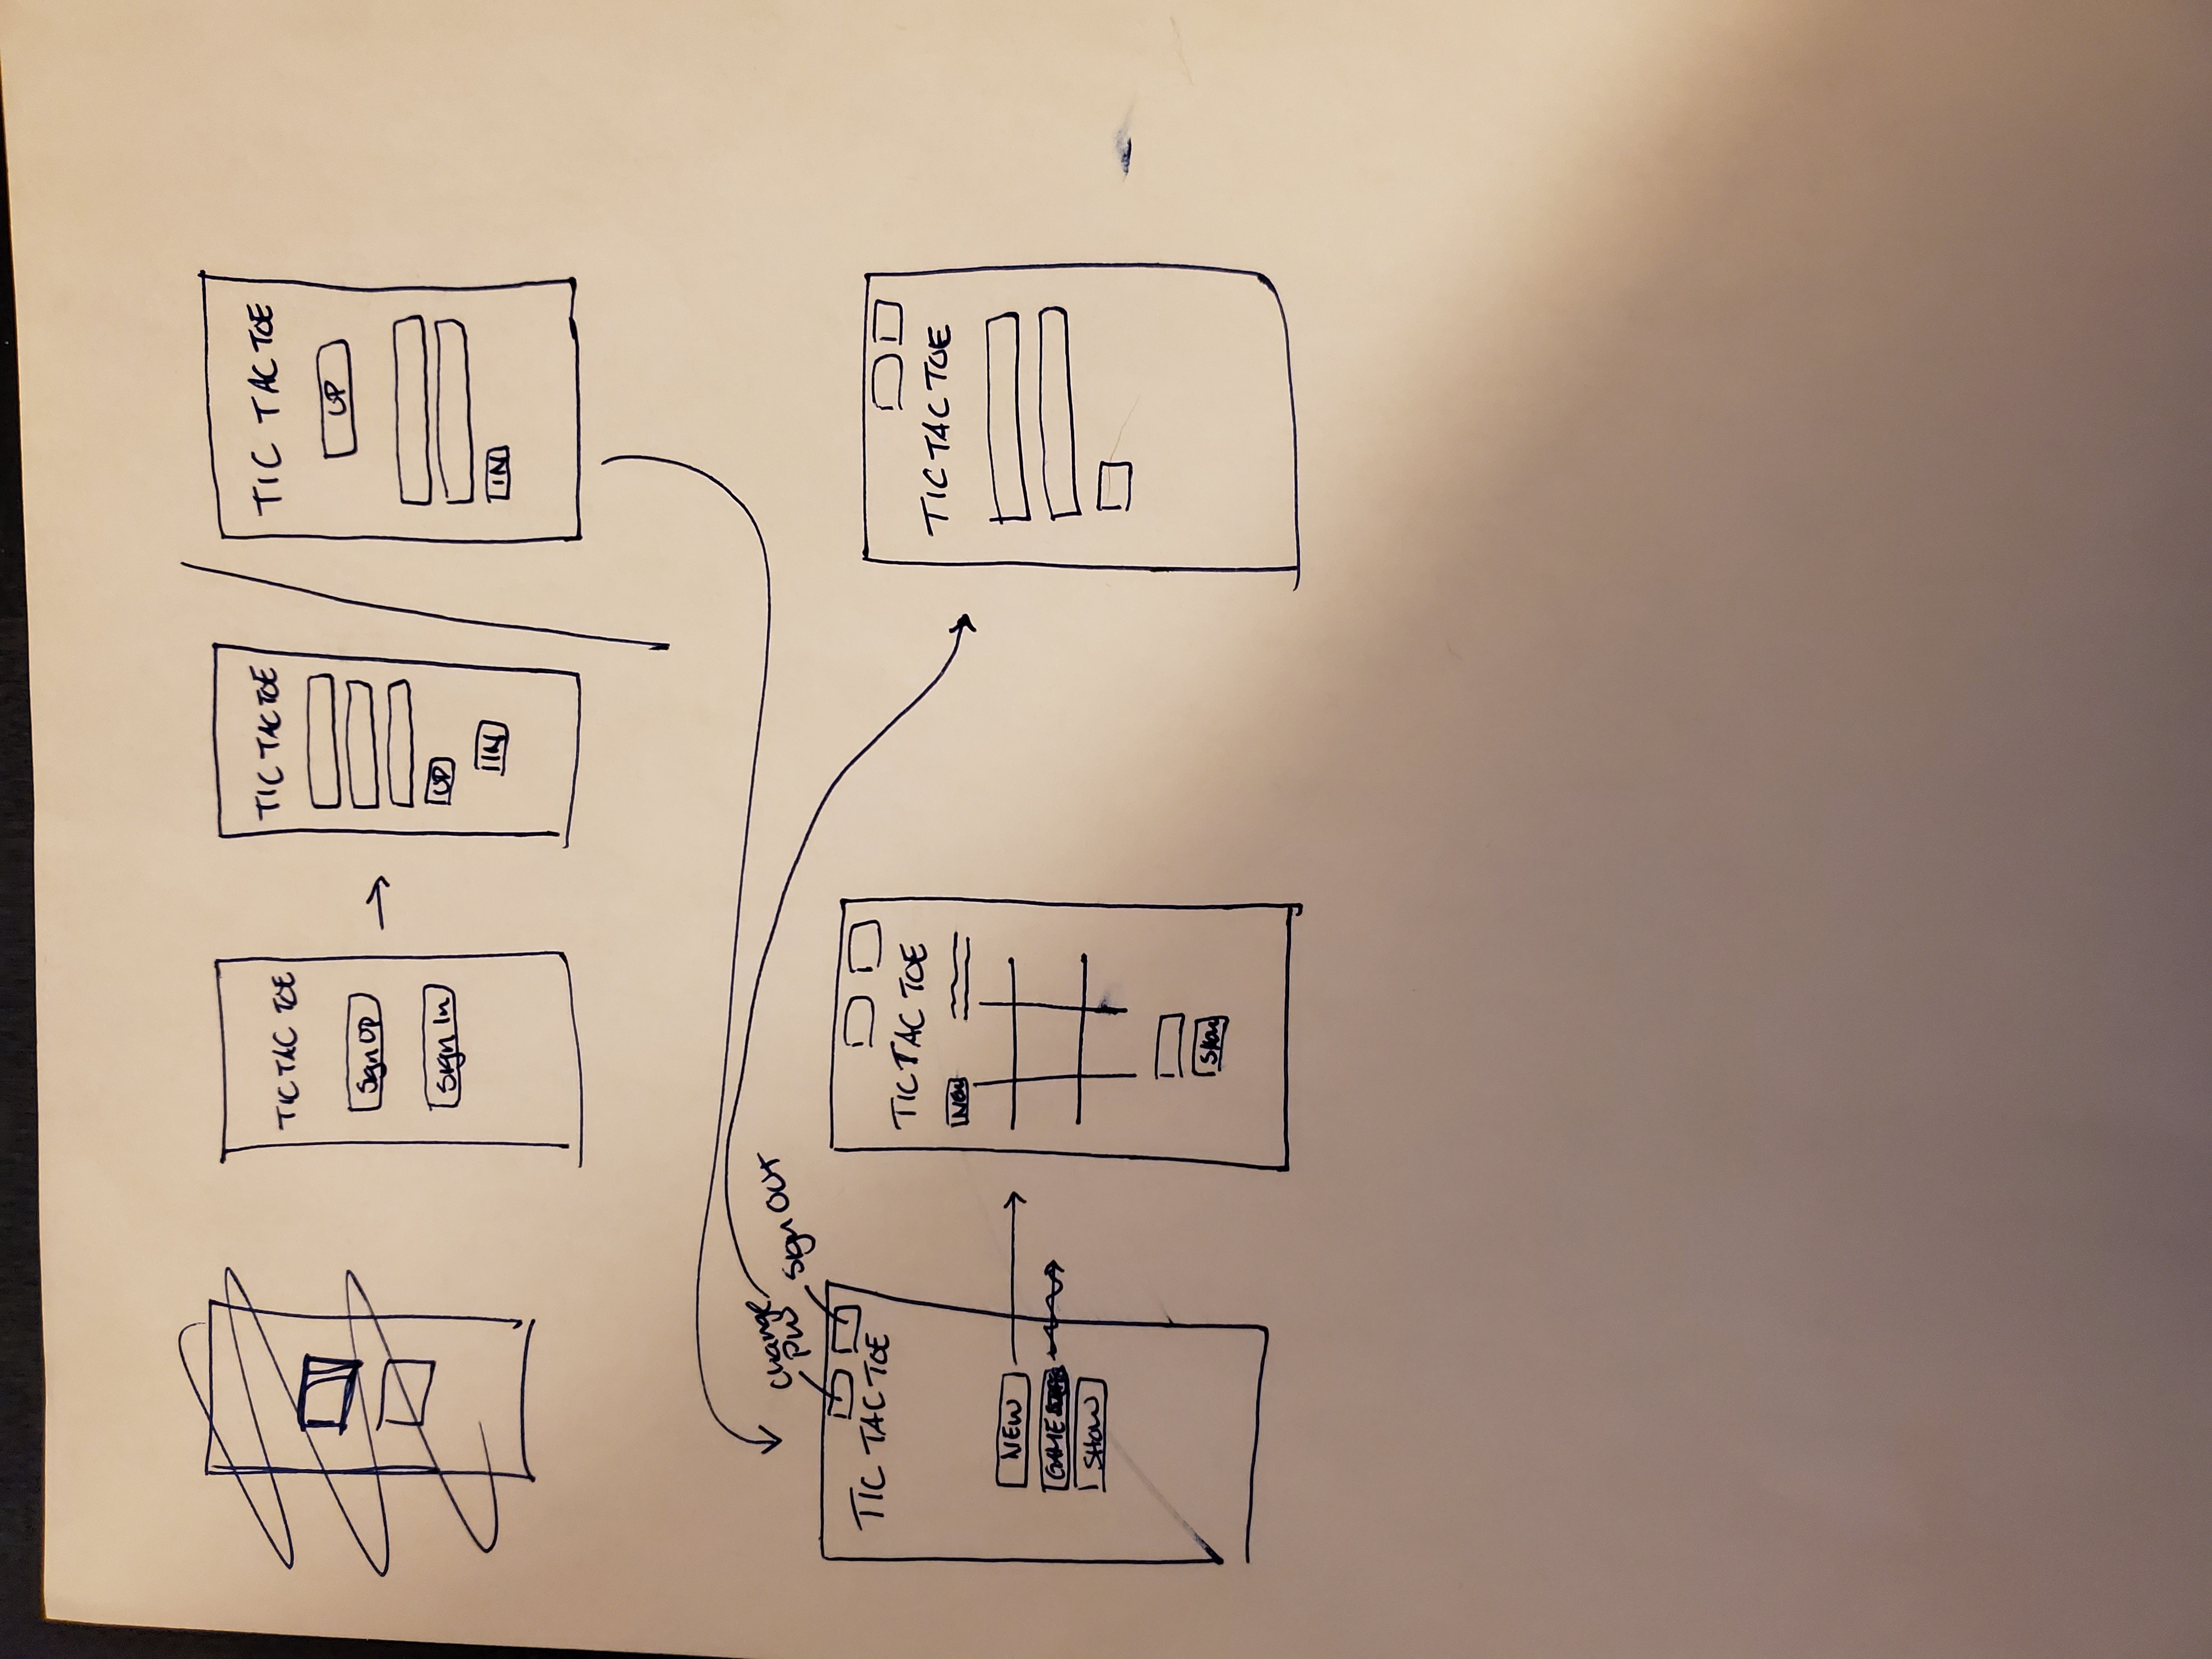 TIC TAC TOE
Sign Up
Sign In
TIC TAC TOE
UP
IN
TIC TAC TOE
UP
IN
change
PW
Sign OUT
TIC TAC TOE
NEW
GAME
SHOW
TIC TAC TOE
New
Show
TIC TAC TOE